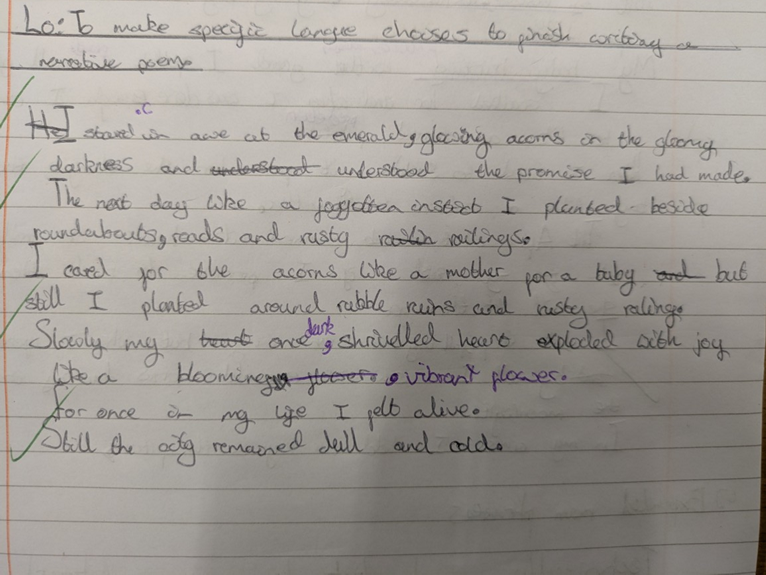 Lo: To make specific langue choises to finish writing a
narrative poem.
.C
I stared in awe at the emerald, glowing acorns in the gloomy
darkness and understood understood the promise I had made.
The next day like a foggotten instect I planted beside
roundabouts, roads and rusty railin railings.
I cared for the acorns like a mother for a baby and but
still I planted around rubble ruins and rusty railing.
Slowly my heart once dark, shrivelled heart exploded with joy
like a blooming flower. , vibrant flower.
for once in my life I felt alive.
Still the city remained dull and cold.